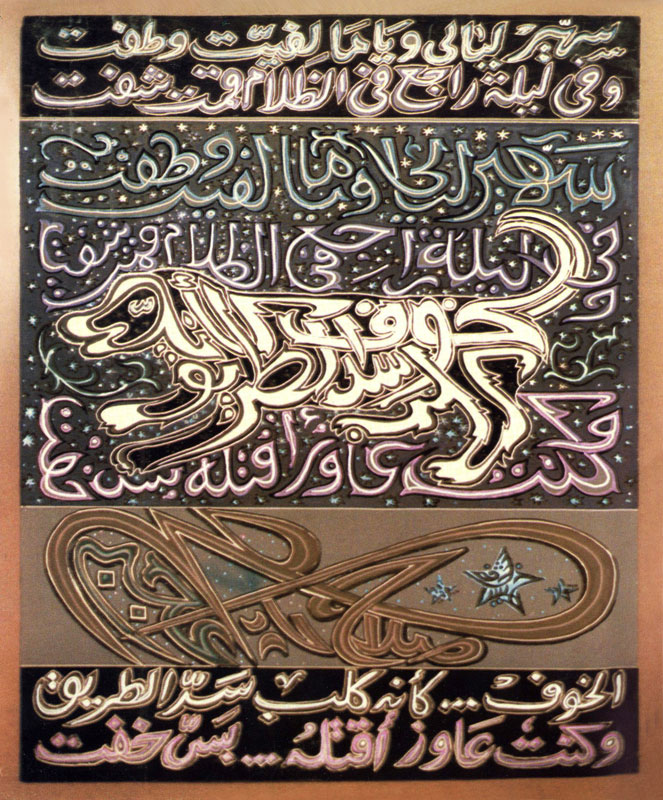 سهّير ليالى وياما لفيّت وطفت
وفى ليلة راجع فى الظلام قمت شفت
سهّير ليالى وياما لفيت وطفت
وفى ليلة راجع فى الظلام قمت شفت
الخوف كأنه كلب سدّ الطريق
وكنت عاوز أقتله بسّ خفت
صلاح جاهين
الخوف ... كأنه كلب سَدّ الطريق
وكنت عَاوز أقتلهُ ... بَسّ خفت